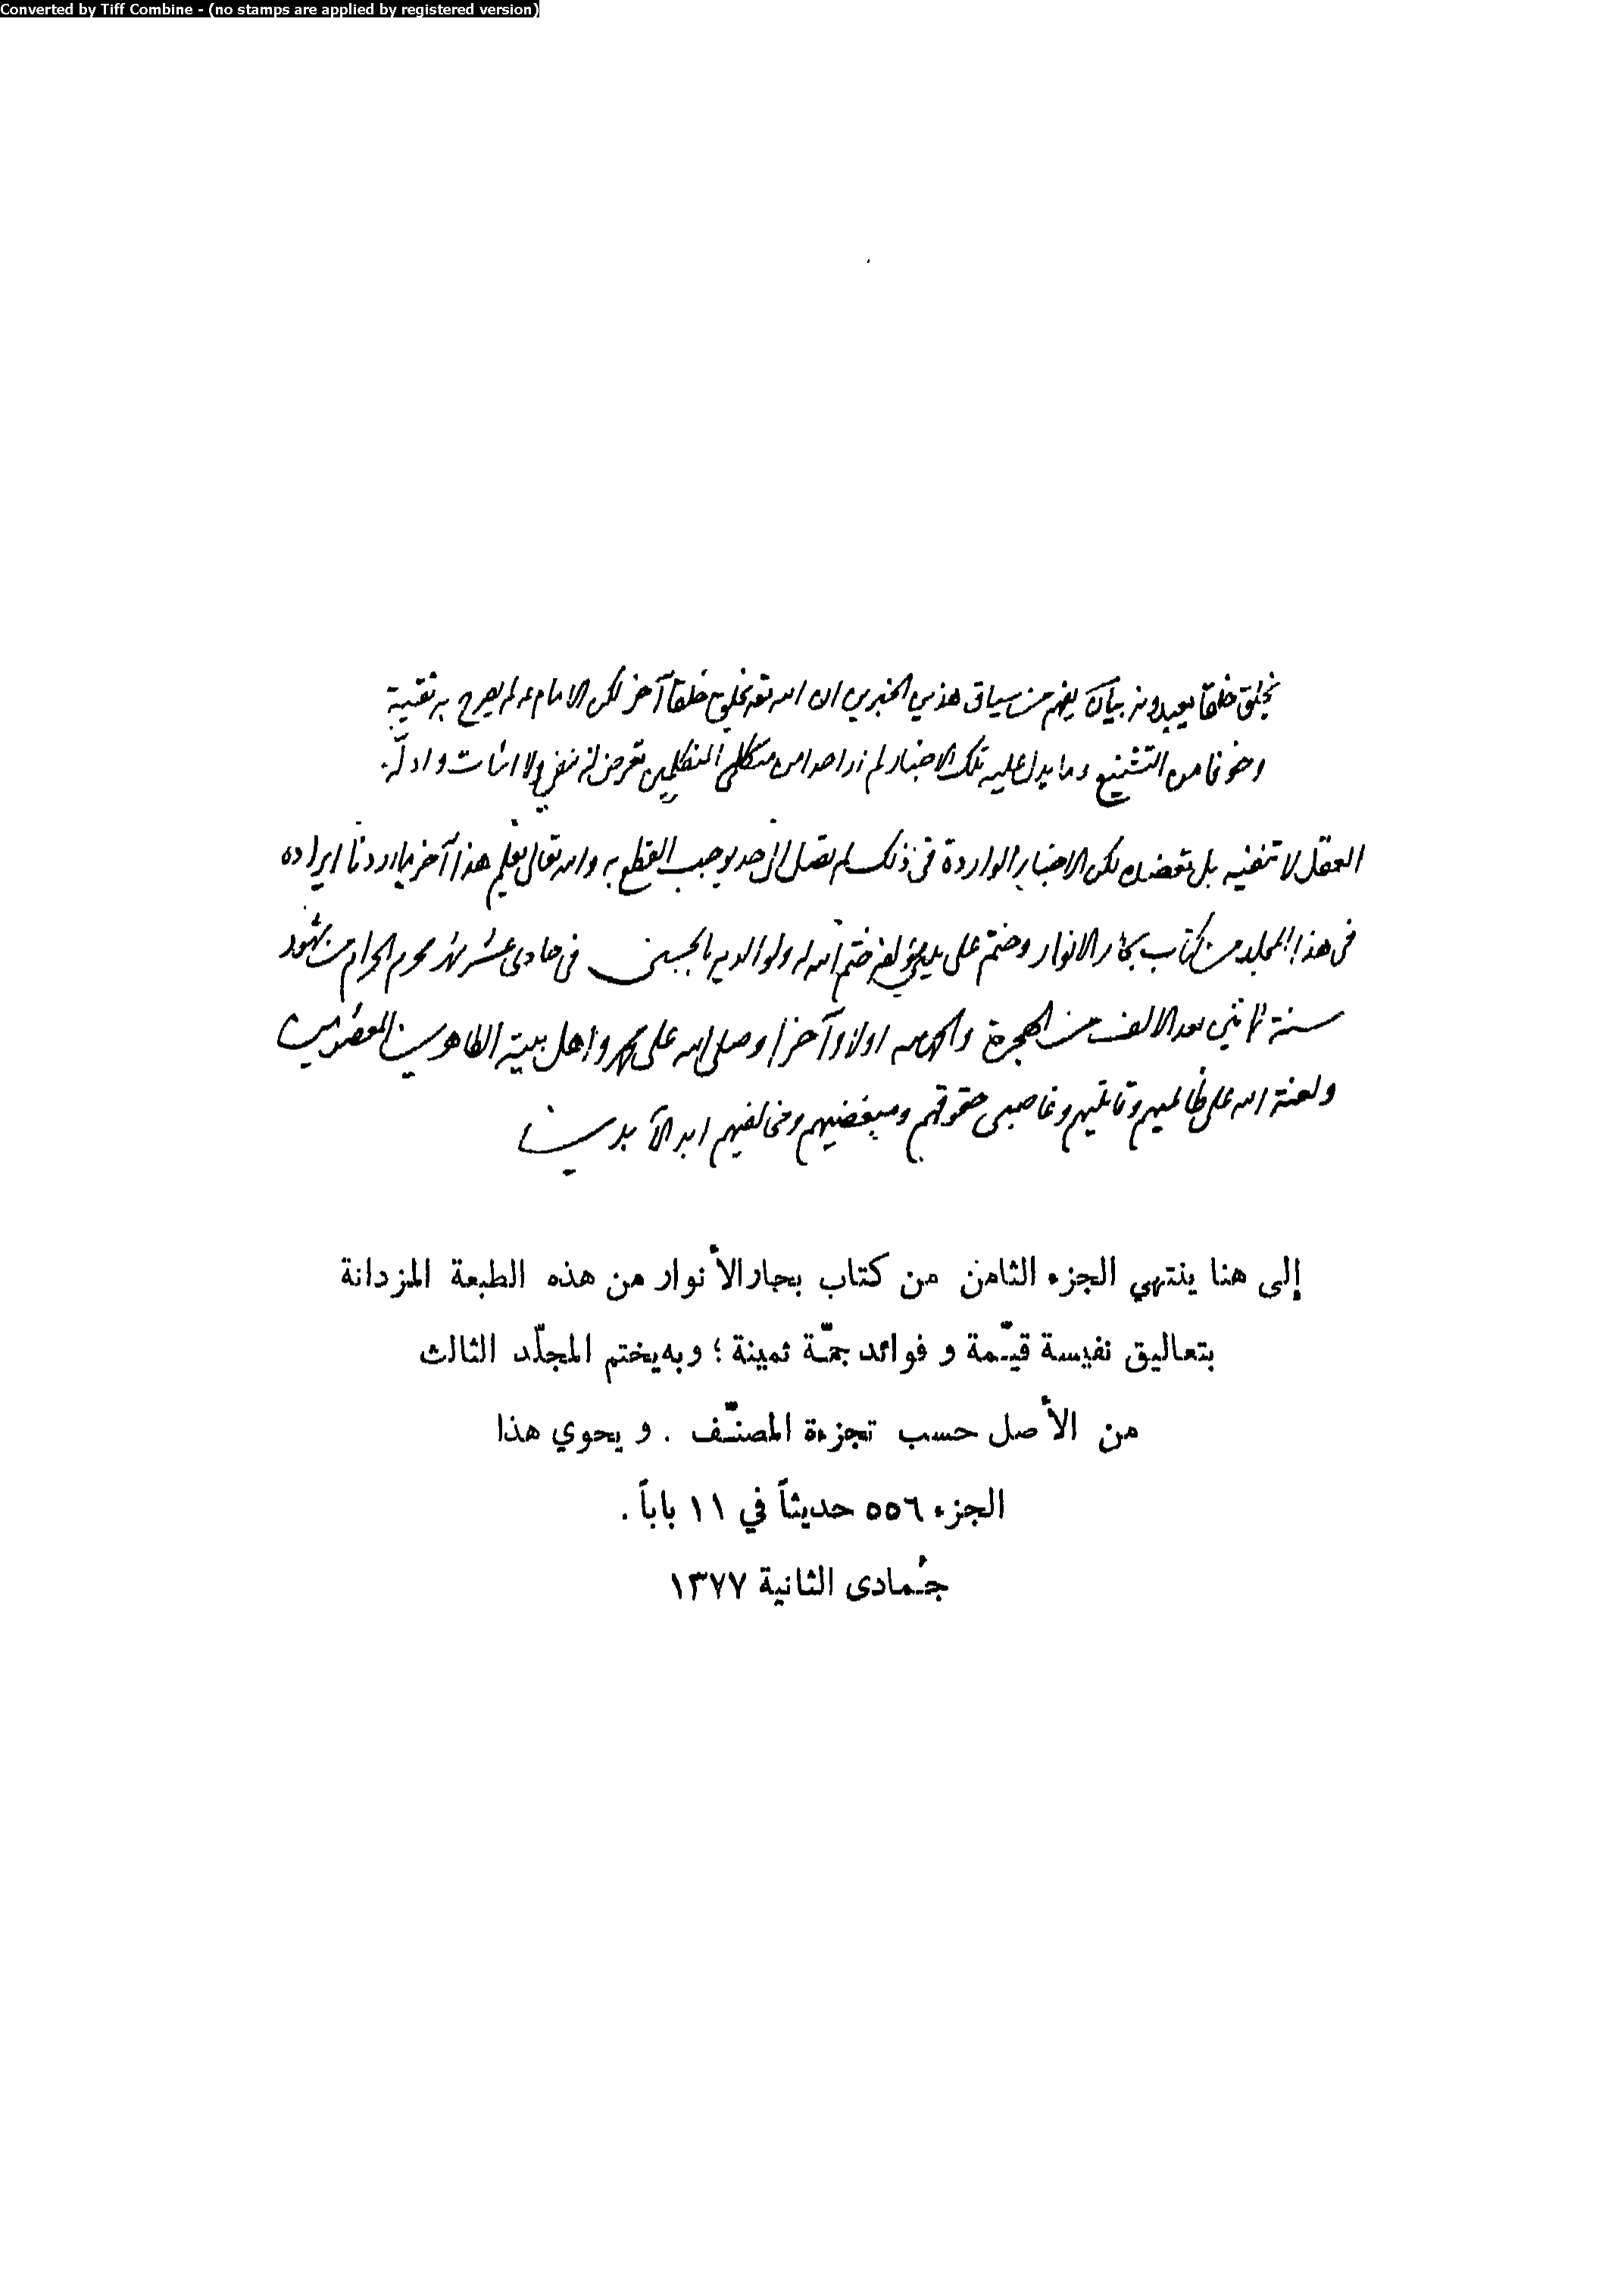 Converted by Tiff Combine - (no stamps are applied by registered version)
يخلق خلقا يعبدونه بيان يفهم من سياق هذين الخبرين ان الله تعه يخلق خلقاً آخر لكن الامام ع لم يصرح به تقية
وخوفا من التشنيع وما يدل عليه تلك الاخبار لم ار احدا من متكلمى المتكلمين تعرض له بنفي ولا اثبات و ادلّة
العقل لا تنفيه بل تعضده لكن الاخبار الواردة فى ذلك لم تصل الى حد يوجب القطع به والله تعالى يعلم هذا آخر ما اردنا ايراده
فى هذا المجلد من كتاب بحار الانوار وختم على يدى مؤلفه ختم الله له ولوالديه بالحسنى فى حادى عشر شهر محرم الحرام من شهور
سنة ثمانين بعد الالف من الهجرة والحمد لله اولا وآخرا وصلى الله على محمد واهل بيته الطاهرين المعصومين
ولعنة الله على ظالميهم وقاتليهم وغاصبى حقوقهم ومبغضيهم ومخالفيهم ابد الآبدين
إلى هنا ينتهي الجزء الثامن من كتاب بحار الأنوار من هذه الطبعة المزدانة
بتعاليق نفيسة قيّمة و فوائد جمّة ثمينة ؛ وبه يختم المجلّد الثالث
من الأصل حسب تجزءة المصنّف . و يحوي هذا
الجزء ٥٥٦ حديثاً في ١١ باباً .
جُمادى الثانية ١٣٧٧